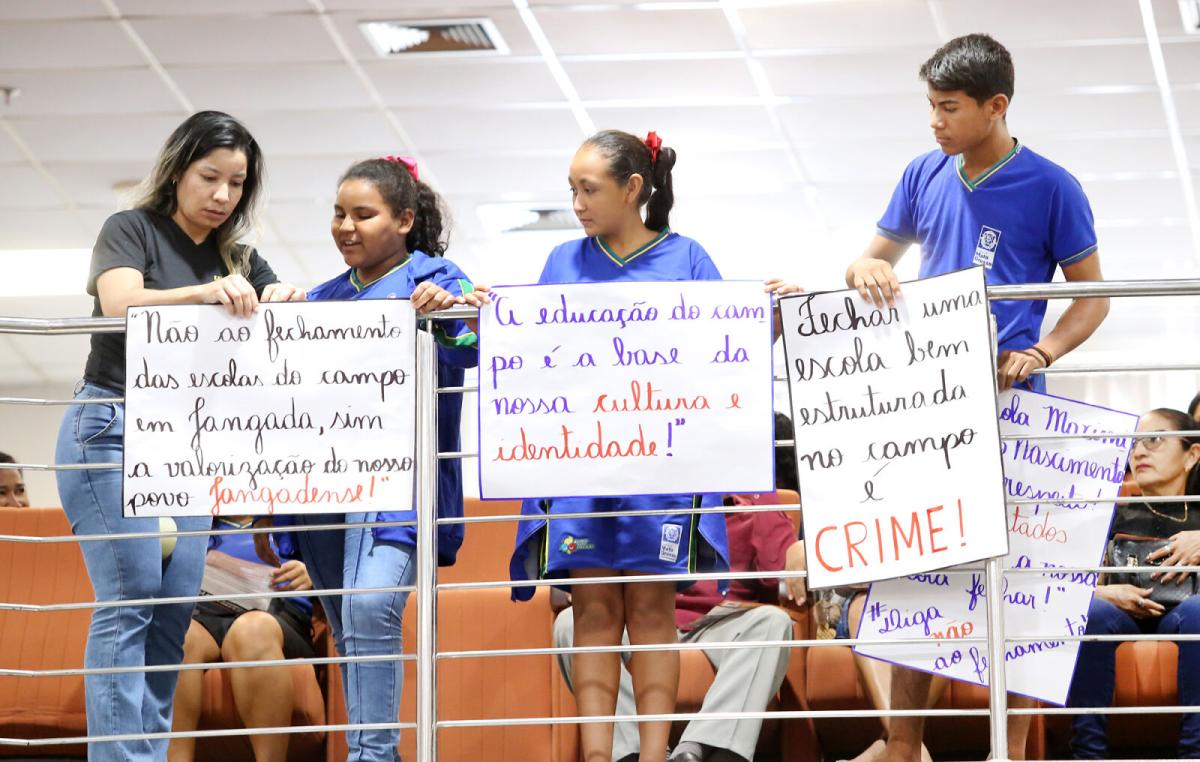 "Não ao fechamento
das escolas do campo
em Jangada, sim
a valorização do nosso
povo Jangadense!"
"A educação do cam
po é a base da
nossa cultura e
identidade!"
Fechar uma
escola bem
estruturada
no campo
é
CRIME!
Nascimento
respeit
fechar!"
#Diga
não
ao fechament
Mato
Grosso